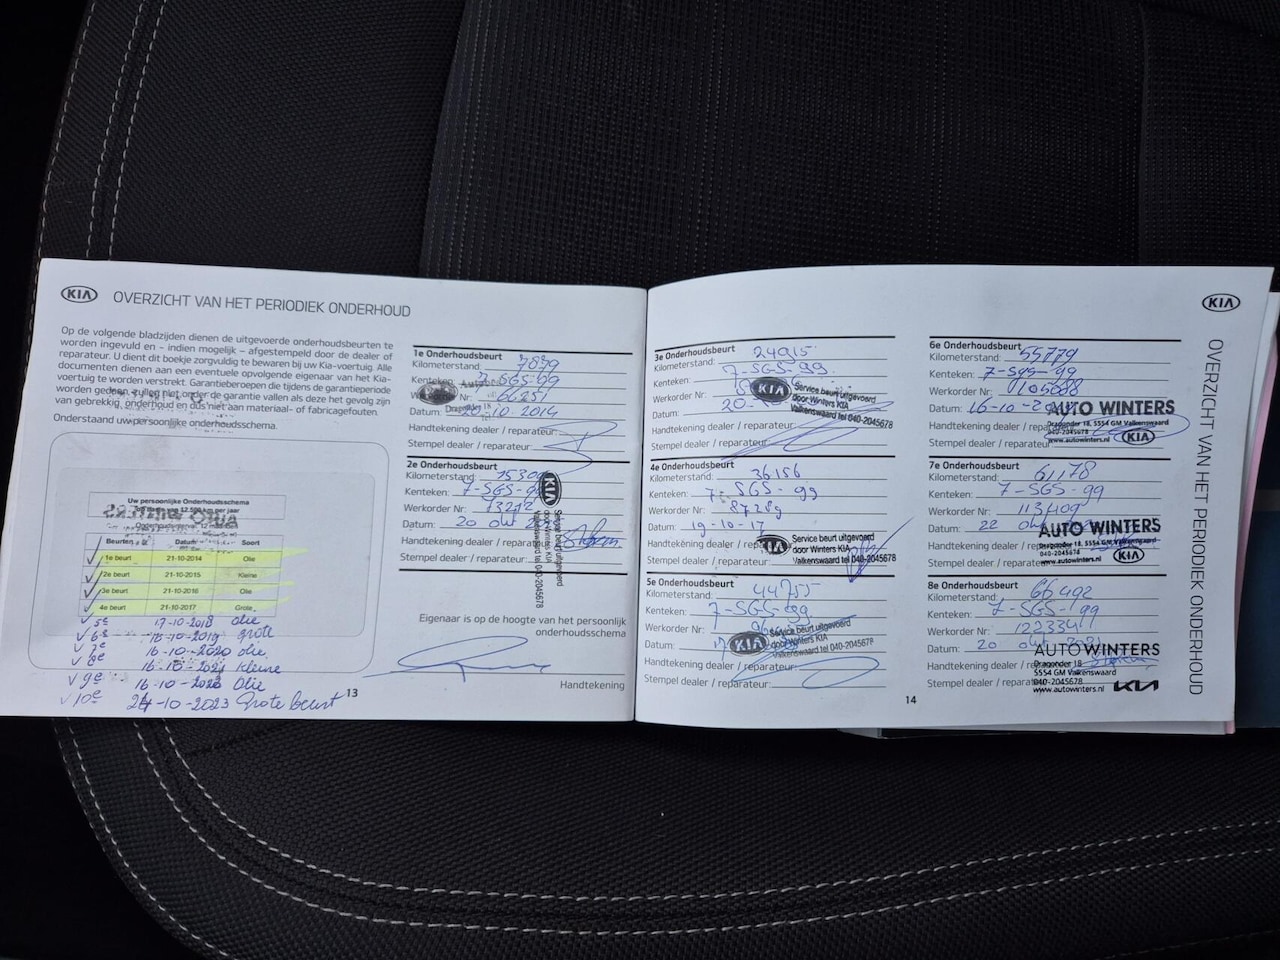 KIA OVERZICHT VAN HET PERIODIEK ONDERHOUD
Op de volgende bladzijden dienen de uitgevoerde onderhoudsbeurten te
worden ingevuld en – indien mogelijk – afgestempeld door de dealer of
reparateur. U dient dit boekje zorgvuldig te bewaren bij uw Kia-voertuig. Alle
documenten dienen aan een eventuele opvolgende eigenaar van het Kia-
voertuig te worden verstrekt. Garantieberoepen die tijdens de garantieperiode
worden gedaan, zullen niet onder de garantie vallen als deze het gevolg zijn
van gebrekkig, onderhoud en dus niet aan materiaal- of fabricagefouten.
Onderstaand uw persoonlijke onderhoudsschema.
Uw persoonlijke Onderhoudsschema
km per jaar
Beurten Datum Soort
1e beurt 21-10-2014 Olie
2e beurt 21-10-2015 Kleine
3e beurt 21-10-2016 Olie
4e beurt 21-10-2017 Grote
5e 17-10-2018 olie
6e 18-10-2019 grote
7e 16-10-2020 olie
8e 16-10-2021 Kleine
9e 16-10-2020 Olie
10e 24-10-2023 Grote beurt
13
1e Onderhoudsbeurt
Kilometerstand: 7879
Kenteken: 7-SGS-99
Werkorder Nr: 66251
Datum: 20-10-2014
Handtekening dealer / reparateur:
Stempel dealer / reparateur:
2e Onderhoudsbeurt
Kilometerstand:
Kenteken: 7-SGS-99
Werkorder Nr: 73212
Datum: 20 okt
Handtekening dealer / reparateur:
Stempel dealer / reparateur:
KIA
Service beurt uitgevoerd
door Winters KIA
Valkenswaard tel 040-2045678
Eigenaar is op de hoogte van het persoonlijk
onderhoudsschema
Handtekening
3e Onderhoudsbeurt
Kilometerstand: 24915
Kenteken: 7-SGS-99
Werkorder Nr:
Datum: 20-
Handtekening dealer / reparateur:
Stempel dealer / reparateur:
KIA
Service beurt uitgevoerd
door Winters KIA
Valkenswaard tel 040-2045678
4e Onderhoudsbeurt
Kilometerstand: 36156
Kenteken: 7-SGS-99
Werkorder Nr: 87289
Datum: 19-10-17
Handtekening dealer / reparateur:
Stempel dealer / reparateur:
KIA
Service beurt uitgevoerd
door Winters KIA
Valkenswaard tel 040-2045678
5e Onderhoudsbeurt
Kilometerstand: 44755
Kenteken: 7-SGS-99
Werkorder Nr:
Datum: 17
Handtekening dealer / reparateur:
Stempel dealer / reparateur:
KIA
Service beurt uitgevoerd
door Winters KIA
Valkenswaard tel 040-2045678
14
6e Onderhoudsbeurt
Kilometerstand: 55779
Kenteken: 7-SGS-99
Werkorder Nr: 105088
Datum: 16-10-
Handtekening dealer / reparateur:
Stempel dealer / reparateur:
AUTO WINTERS
Dragonder 18, 5554 GM Valkenswaard
040-2045678
www.autowinters.nl KIA
7e Onderhoudsbeurt
Kilometerstand: 61178
Kenteken: 7-SGS-99
Werkorder Nr: 113409
Datum: 22 okt
Handtekening dealer / reparateur:
Stempel dealer / reparateur:
AUTO WINTERS
Dragonder 18, 5554 GM Valkenswaard
040-2045678
www.autowinters.nl KIA
8e Onderhoudsbeurt
Kilometerstand: 66492
Kenteken: 7-SGS-99
Werkorder Nr: 122334
Datum: 20 okt 2021
Handtekening dealer / reparateur:
Stempel dealer / reparateur:
AUTO WINTERS
Dragonder 18
5554 GM Valkenswaard
040-2045678
www.autowinters.nl KIA
KIA
OVERZICHT VAN HET PERIODIEK ONDERHOUD